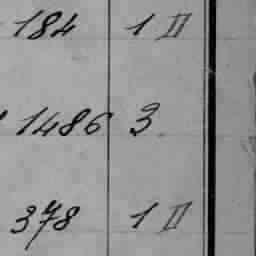 184 1 II
1486 3
378 1 II